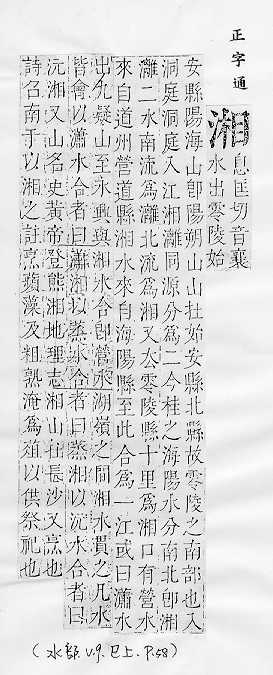 正字通
湘
息匡切音襄
水出零陵始
安縣陽海山卽陽朔山山在始安縣北縣故零陵之南部也入
洞庭洞庭入江湘灕同源分爲二今桂之海陽水分南北卽湘
灕二水南流爲灕北流爲湘又去零陵縣十里爲湘口有營水
來自道州營道縣湘水來自海陽縣至此合爲一江或曰瀟水
出九疑山至永興與湘水合卽營水湖嶺之閒湘水貫之凡水
皆會以瀟水合者曰瀟湘以蒸水合者曰蒸湘以沅水合者曰
沅湘又山名史黃帝登熊湘地理志湘山在長沙又烹也
詩召南于以湘之註烹蘋藻及粗熟淹爲菹以供祭祀也
(水部. v.9. 巳上. P.58)